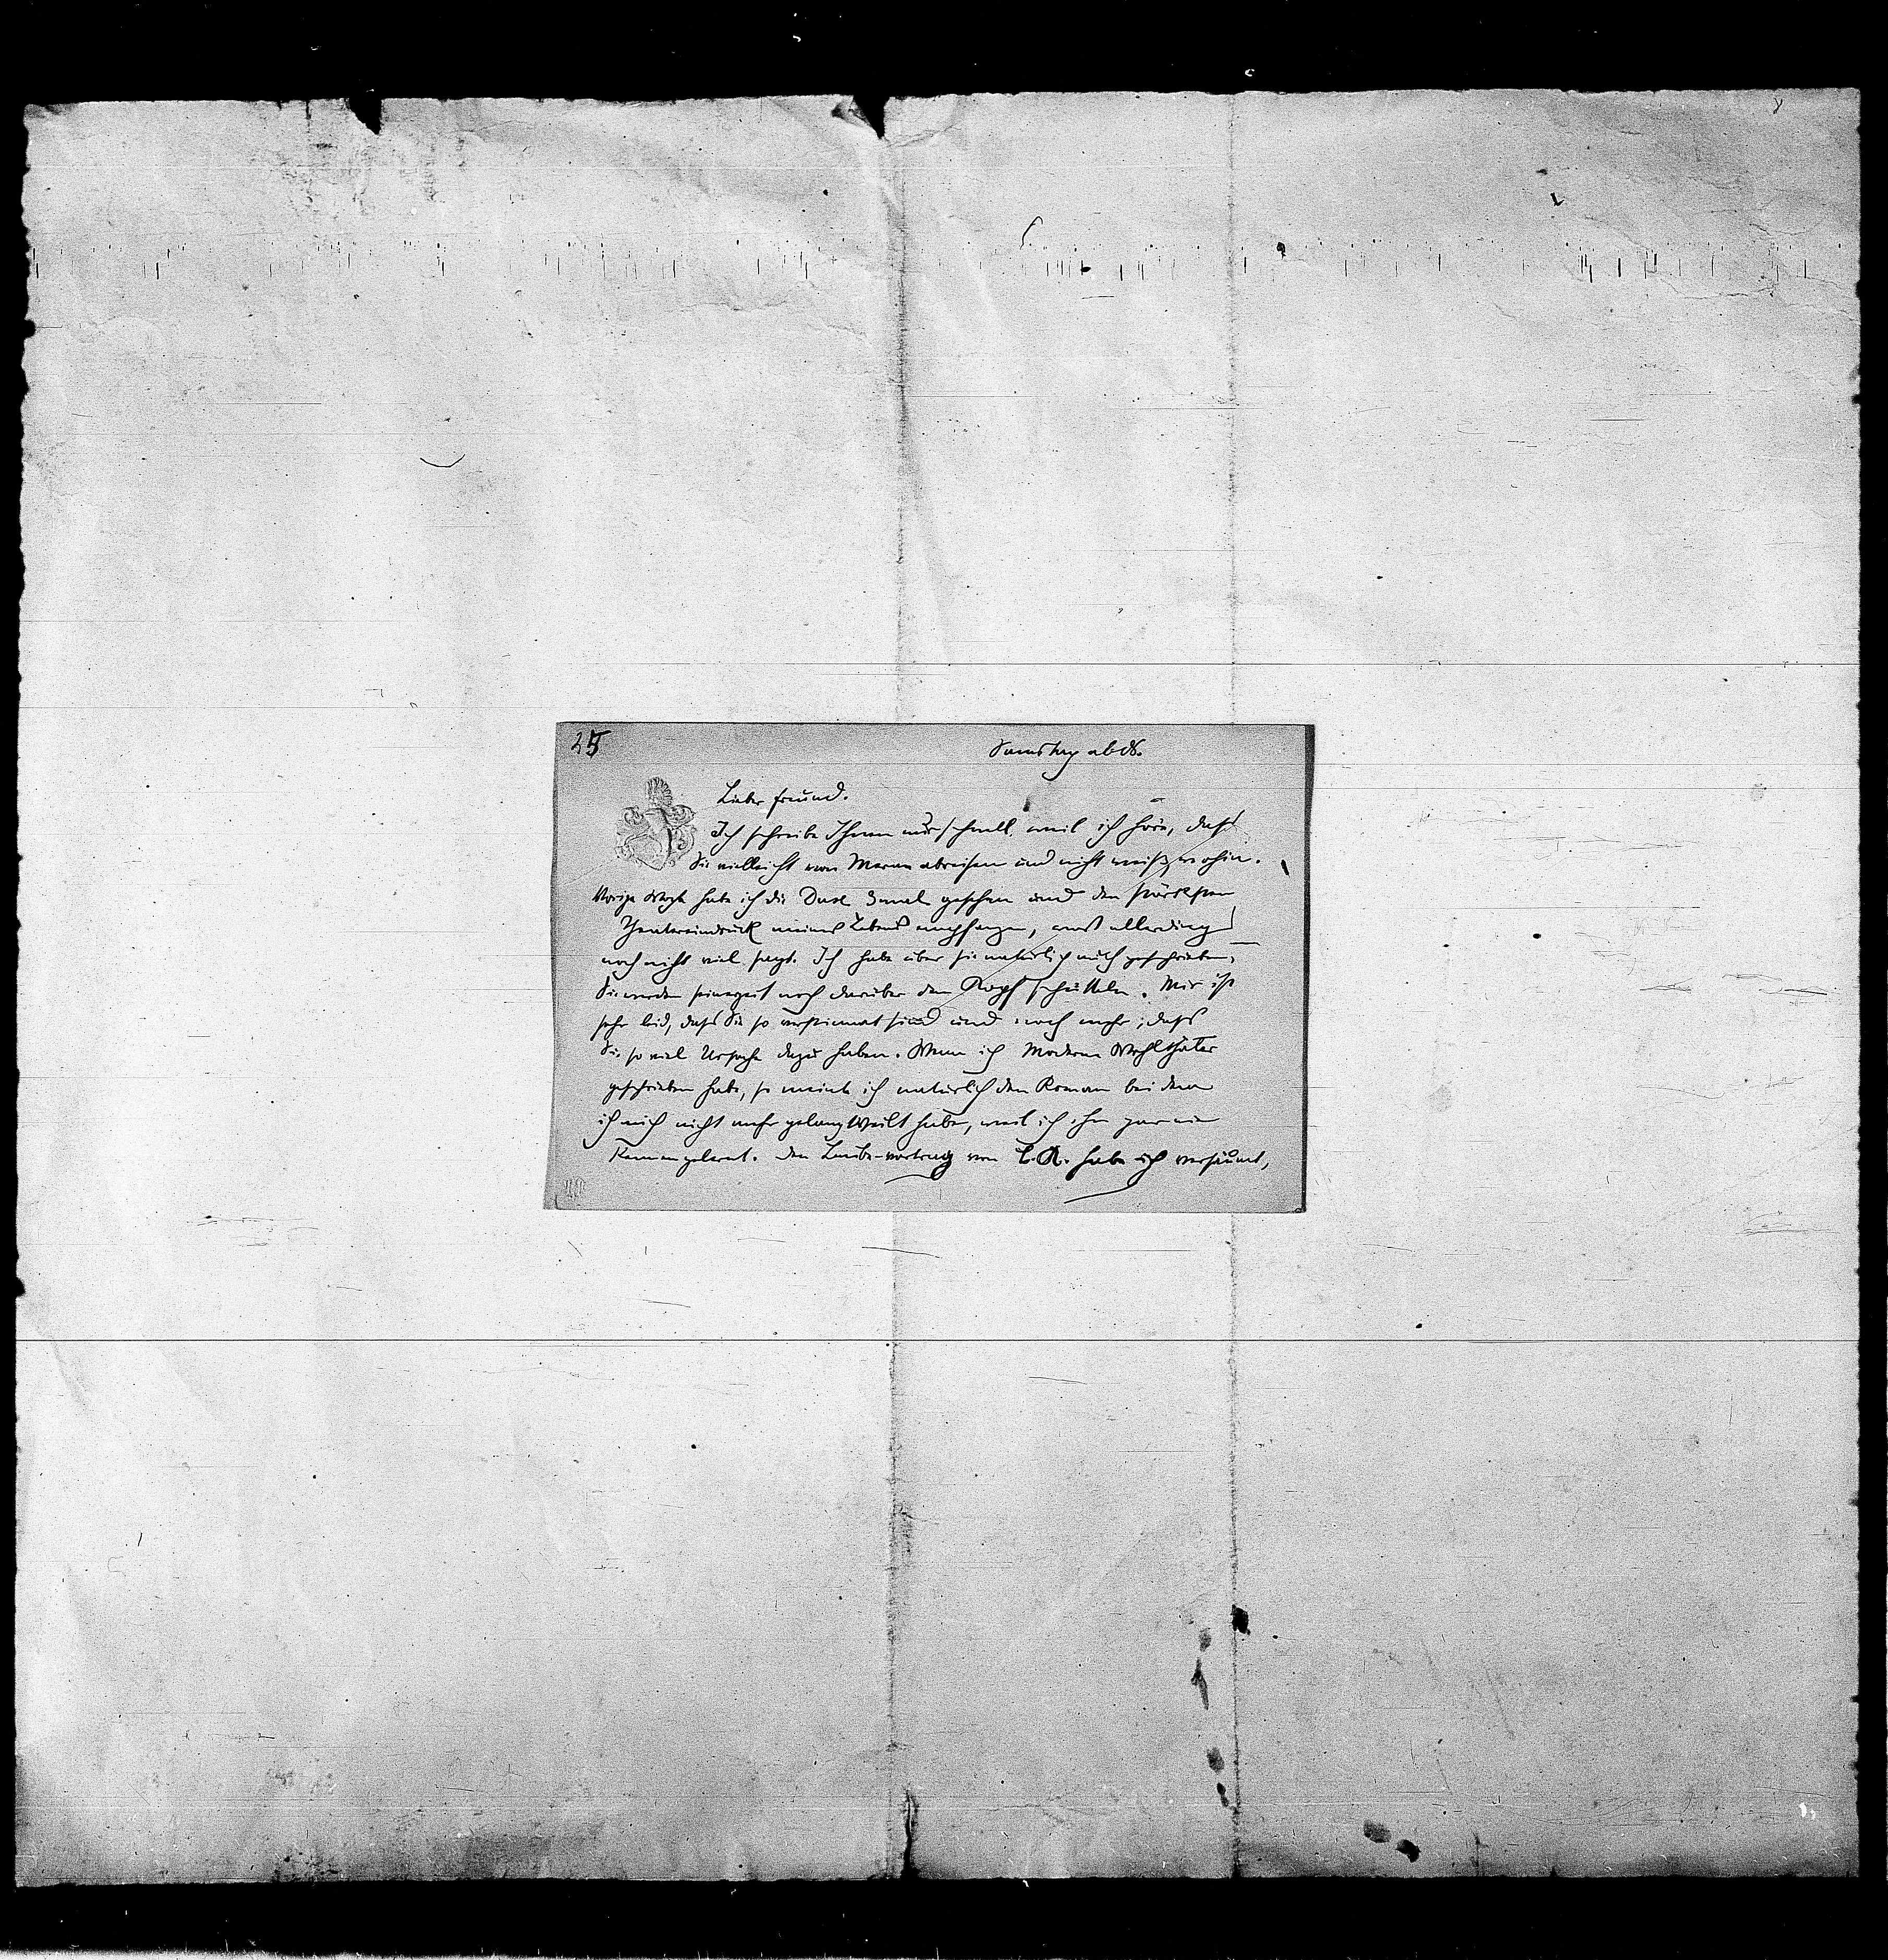 25
Samstag abds.
Lieber Freund.
Ich schreibe Ihnen nur schnell weil ich höre, dass
Sie vielleicht von Meran abreisen und nicht weiß, wohin.
Vorige Woche habe ich die Duse 3mal gesehen und den stärksten
Theatereindruck meines Lebens empfangen, was allerdings
noch nicht viel sagt. Ich habe über sie natürlich auch geschrieben,
Sie werden seinerzeit noch darüber den Kopf schütteln. Mir ist
sehr leid, dass Sie so verstimmt sind und noch mehr, dass
Sie so viel Ursache dazu haben. Wenn ich Moderne Wohlthäter
geschrieben habe, so meinte ich natürlich den Roman bei dem
ich mich nicht mehr gelangweilt habe, weil ich ihn gar nie
kennengelernt. Den Laube-vortrag von habe ich versäumt,